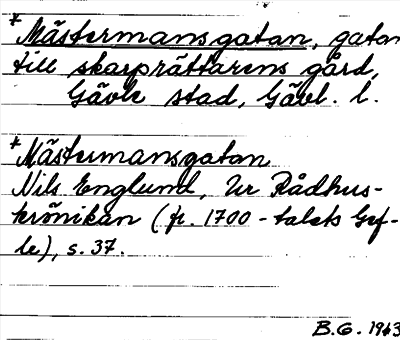 *Mästermansgatan, gatan
till skarprättarens gård,
Gävle stad, Gävl. l.
*Mästermansgatan
Nils Englund, Ur Rådhus-
krönikan (fr. 1700-talets Gef-
le), s. 37.
B.G. 1963